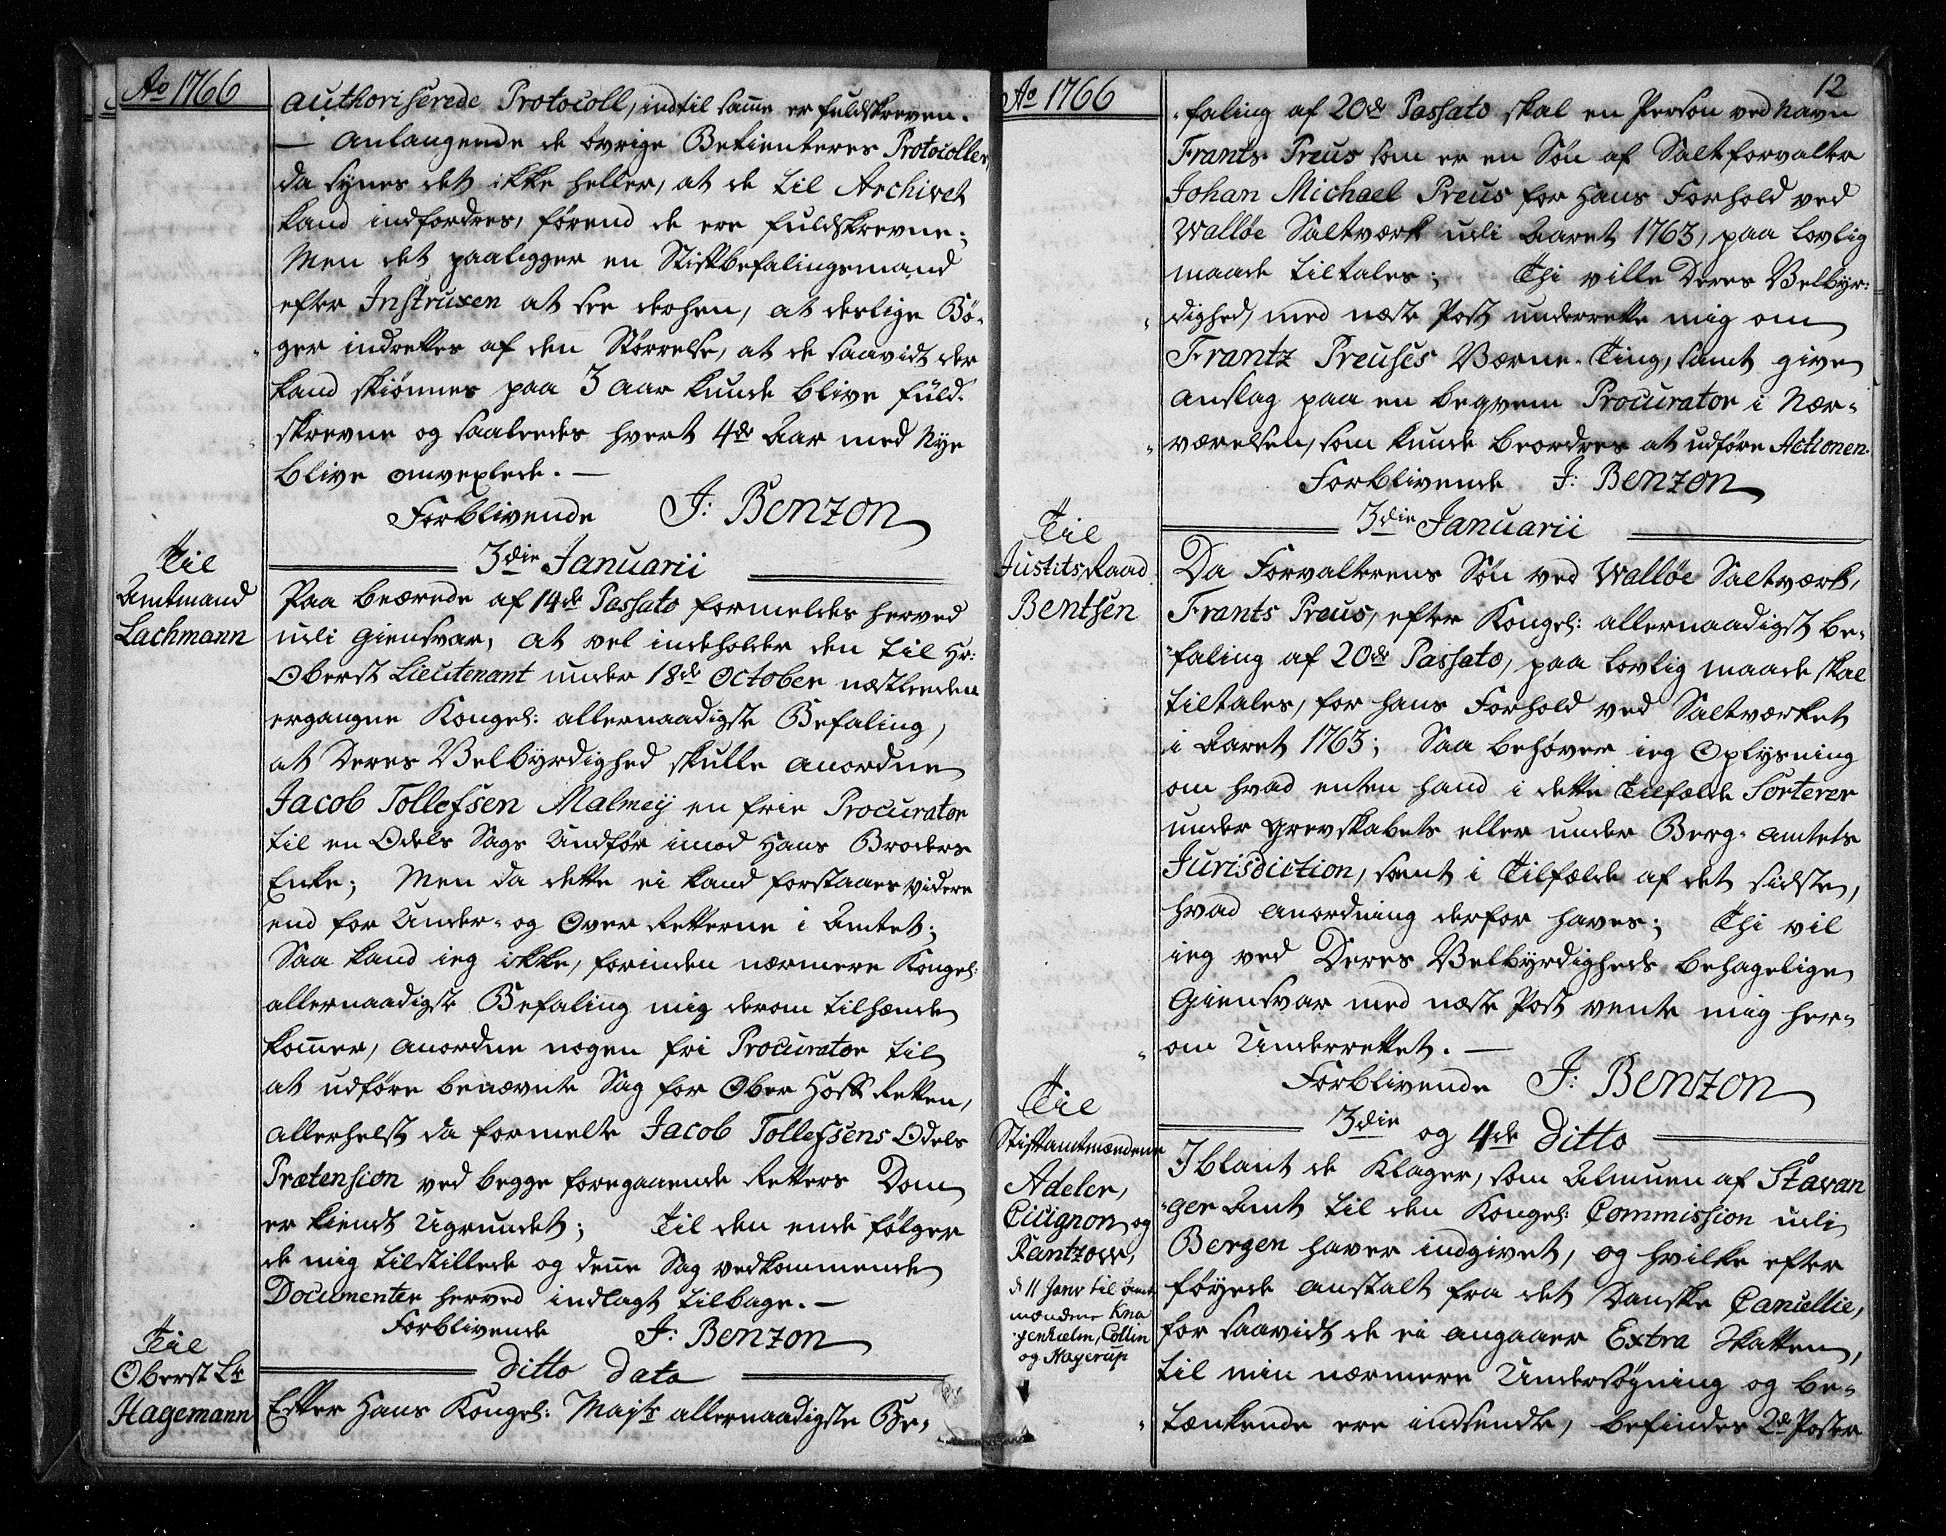 Ao 1766
authoriserede Protocoll, indtil samme er fuldskreven.
— Anlangende de øvrige Betienteres Protocoller,
da synes det ikke heller, at de til Archivet
kand indfordres, førend de ere fuldskrevne;
Men det paaligger en Stiftbefalingsmand
efter Instruxen at see derhen, at deslige Bø-
ger indrettes af den Størrelse, at de saavidt der
kand skiønnes paa 3 Aar kunde blive fuld-
skrevne og saaledes hvert 4de Aar med Nye
blive omvexlede. —
Forblivende J: Benzon
3die Januarii
Til
Amtmand
Lachmann
Paa beærede af 14de Passato formeldes herved
udi Giensvar, at vel indeholder den til Hr:
Oberst Lieutenant under 18de October næstleeden
ergangne Kongel: allernaadigste Befaling,
at Deres Velbyrdighed skulle anordne
Jacob Tollefsen Malmeij en frie Procurator
til en Odels Sags Udfør imod Hans Broders
Enke; Men da dette ei kand forstaaes videre
end for Under- og Over Retterne i Amtet;
Saa kand ieg ikke, forinden nærmere Kongel:
allernaadigste Befaling mig derom tilhænde
kommer, anordne nogen fri Procurator til
at udføre benævnte Sag for Ober Hoff Retten,
allerhelst da formelte Jacob Tollefsens Odels
Prætension ved begge foregaaende Retters Dom
er kiendt Ugrundet; Til den ende følger
de mig tilstillede og denne Sag vedkommende
Documenter herved indlagt tilbage. —
Forblivende J: Benzon
Ditto Dato
Til
Oberst Lt
Hagemann
Efter Hans Kongel: Majts allernaadigste Be-
Ao 1766
12
-faling af 20de Passato skal en Person ved Navn
Frants Preus som er en Søn af Saltforvalter
Johan Michael Preus for Hans Forhold ved
Walløe Saltværk udi Aaret 1763, paa Lovlig
maade tiltales; Thi ville Deres Velbyr-
dighed, med næste Post underrette mig om
Frantz Preuses Værne-Ting, samt give
Anslag paa en begvem Procurator i Nær-
værelsen, som kunde beordres at udføre Actionen.
Forblivende J: Benzon
3die Januarii
Til
Justits Raad
Bentsen
Da Forvalterens Søn ved Walløe Saltværk,
Frants Preus, efter Kongel: allernaadigst Be-
-faling af 20de Passato, paa Lovlig maade skal
tiltales, for hans Forhold ved Saltværket
i Aaret 1763; Saa behøver ieg Oplysning
om hvad enten hand i dette Tilfælde Sorterer
under Grevskabets eller under Berg-Amtets
Jurisdiction, samt i Tilfælde af det sidste,
hvad Anordning derfor haves; Thi vil
ieg ved Deres Velbyrdigheds behagelige
Giensvar med næste Post vente mig her-
om Underrettet. —
Forblivende J: Benzon
3die og 4de Ditto
Til
Stiftamtmændene
Adeler,
Cicignon og
Rantzow,
d 11 Janv til Amt
mændene Kna
genhielm, Collin
og Hagerup
Iblant de Klager, som Almuen af Stavan
-ger Amt til den Kongel: Commission udi
Bergen haver indgivet, og hvilke efter
føyede Anstalt fra det Danske Cancellie,
for saavidt de ei angaaer Extra Skatten,
til min nærmere Undersøgning og be-
tænkende ere indsendte, befindes 2de Poster